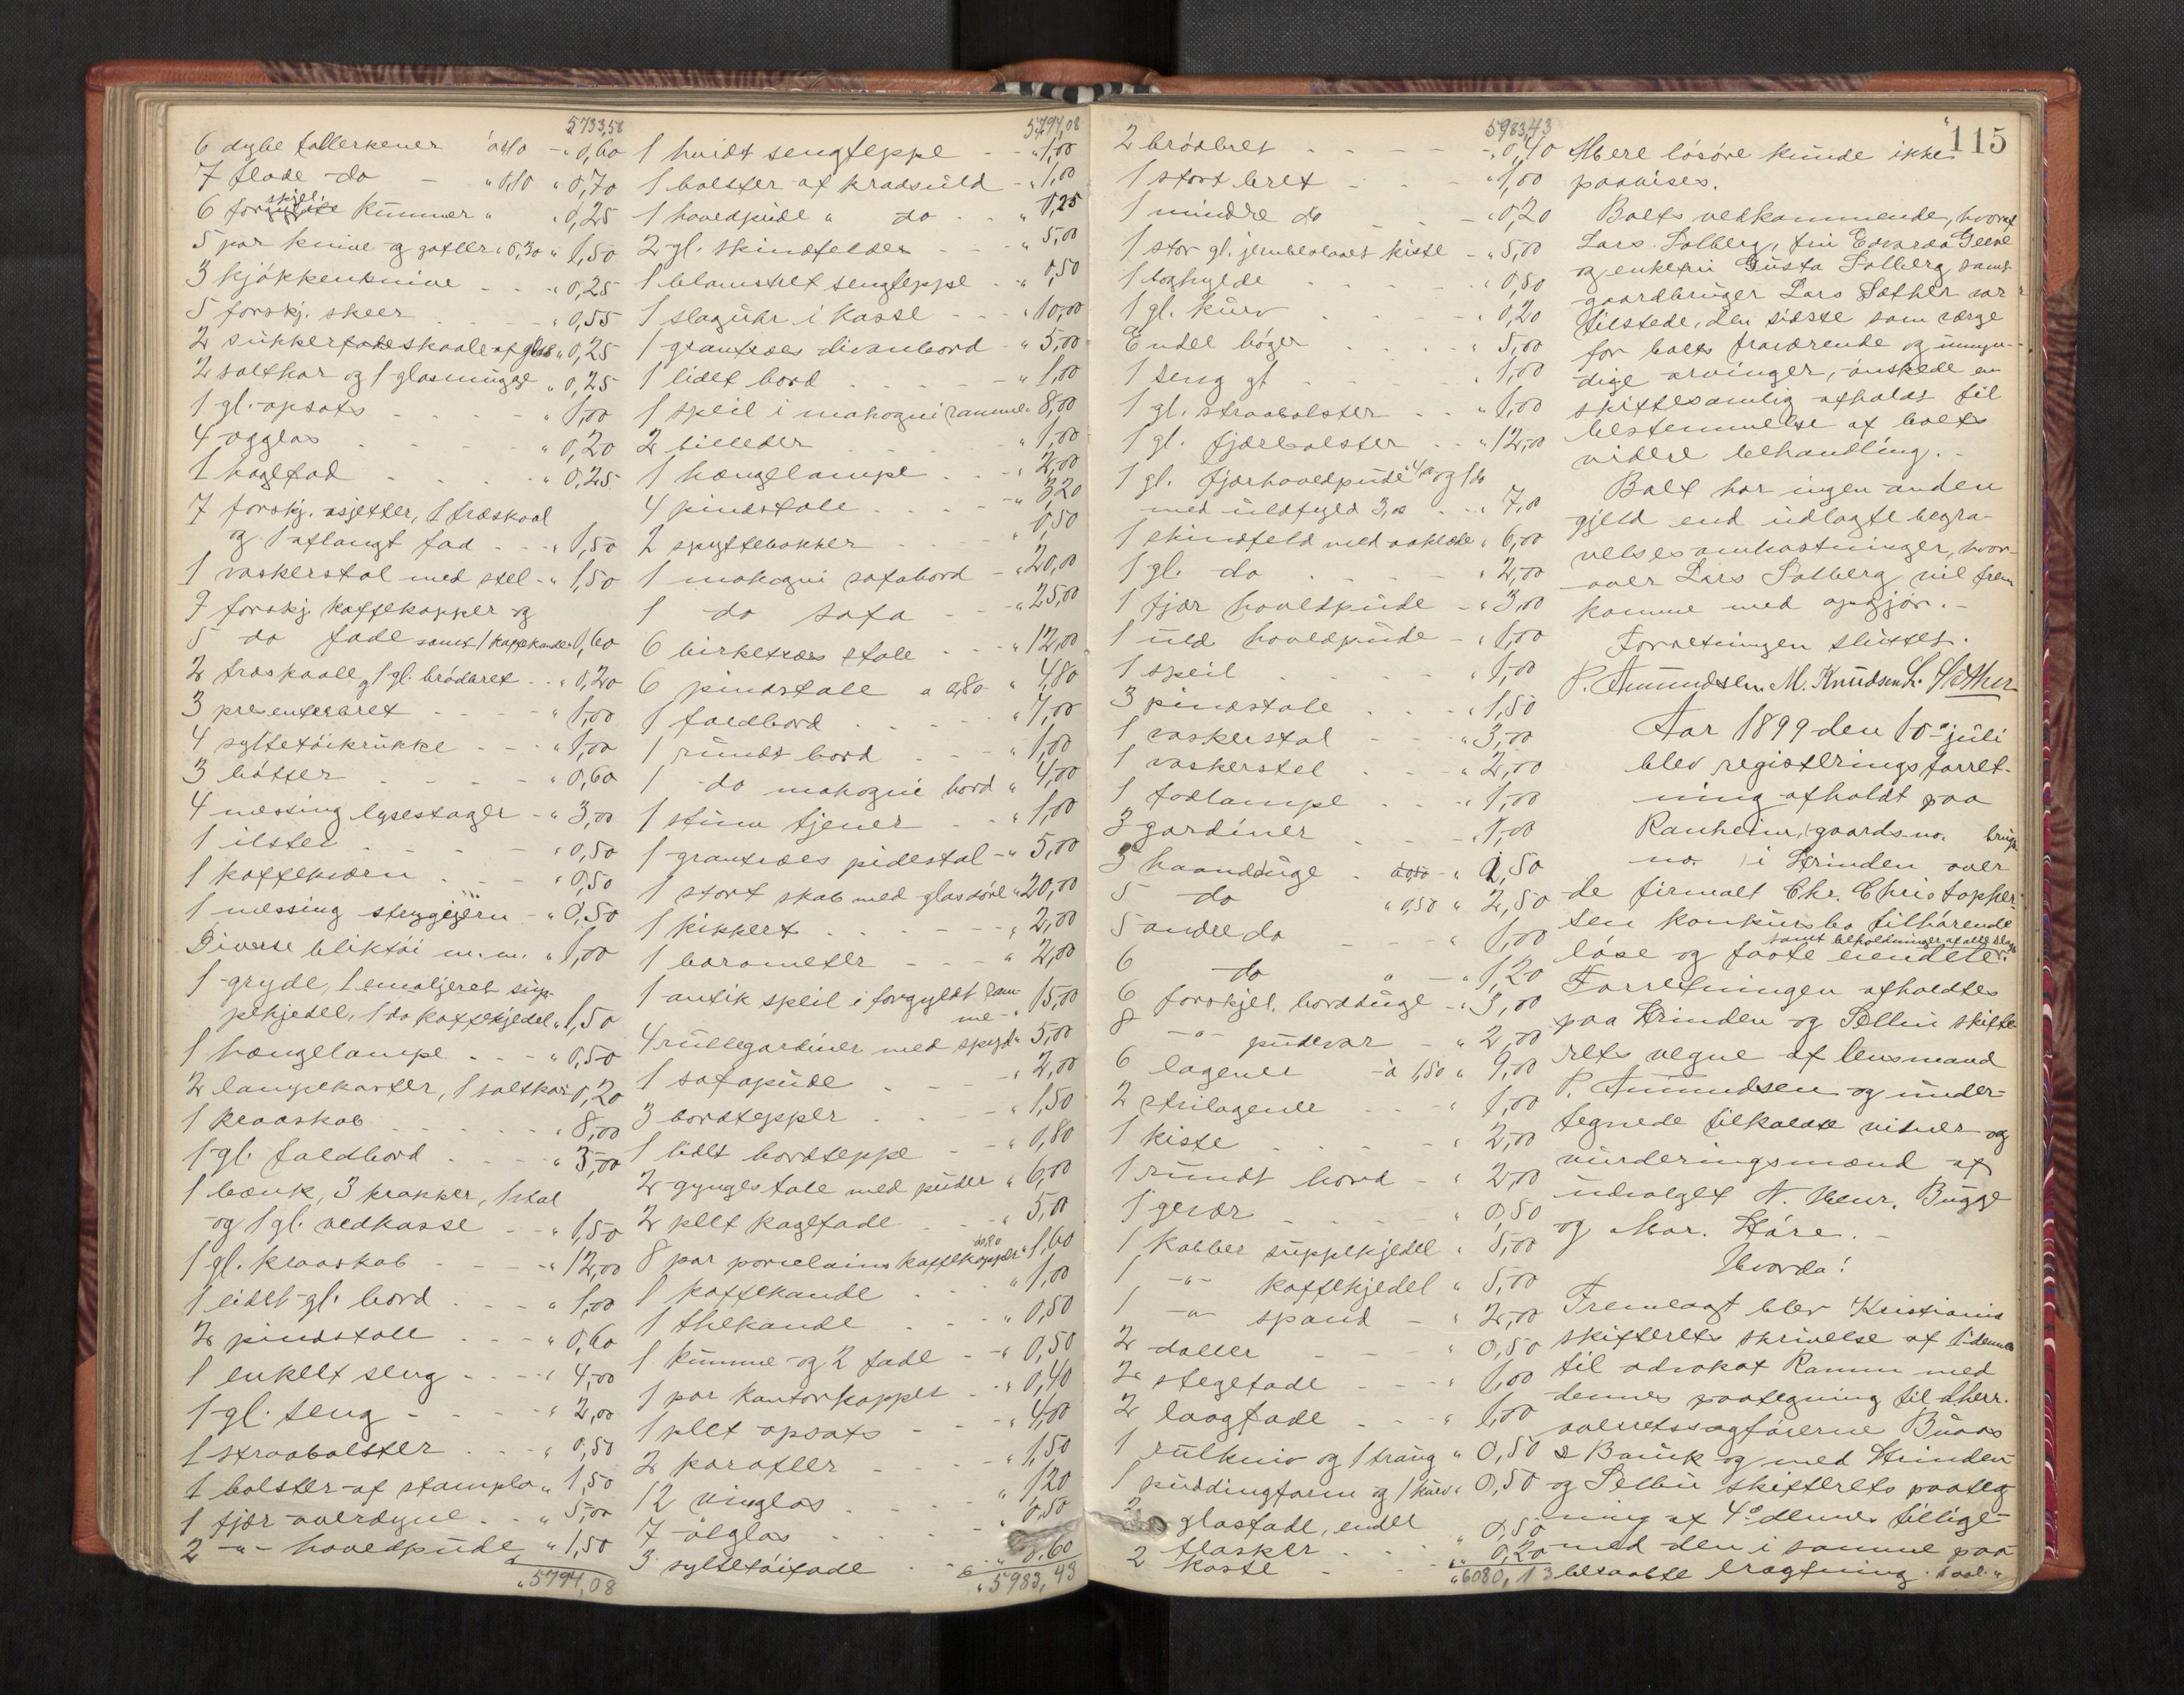 5733,58
6 dybe tallerkener à 0,10 - " 0,60
7 flade do - " 0,10 " 0,70
6 forskjel. kummer " " 0,25
5 par knive og gafler " 0,30 " 1,50
3 kjøkkenknive - - " 0,25
5 forskj. skeer - " 0,55
2 sukkerskaale af glas " 0,25
2 saltkar og 1 glasmugge " 0,25
1 gl. opsats - - - " 1,00
4 ægglas - - " 0,20
1 kagefad - - - " 0,25
7 forskj. asjetter, 1 træskaal
og 1 aflangt fad - - " 1,50
1 vaskerstol med stel - " 1,50
7 forskj. kaffekopper og
5 do fade samt 1 kaffekande " 1,60
2 træskaale og 1 gl. brødbret - " 0,20
3 presenterbret - - " 1,00
4 syltetøikrukke - - " 1,00
3 bøtter - - - " 0,60
4 messing lysestager - " 3,00
1 ilster - - - " 0,50
1 kaffekværn - - " 0,50
1 messing strygejern - " 0,50
Diverse bliktøi m.m. " 1,00
1 gryde, 1 emaljeret sup-
pekjedel, 1 do kaffekjedel " 1,50
1 hængelampe - - - " 0,50
2 lampekarter, 1 saltkar " 0,20
1 kraaskab - - - " 8,00
1 gl. faldbord - - - " 3,00
1 bænk, 3 krakker, 1 stol
og 1 gl. vedkasse - - " 1,50
1 gl. kraaskab - - " 12,00
1 lidet gl. bord - - - " 1,00
2 pindstole - - " 0,60
1 enkelt seng - - - " 4,00
1 gl. seng - - - " 2,00
1 straabolster - - " 0,50
1 bolster af stamplo " 1,50
1 fjær overdyne - - " 5,00
2 -"- hovedpude " 1,50
" 5794,08
5794,08
1 hvidt sengteppe - - " 1,00
1 bolster af kraduld - " 1,00
1 hovedpude " do - - " 0,25
2 gl. skindfelder - - " 5,00
1 blomstret sengteppe - " 0,50
1 slaguhr i kasse - - " 10,00
1 grantræes divanbord - " 5,00
1 lidet bord - - - " 1,00
1 speil i mahogni ramme " 8,00
2 billeder - - " 1,00
1 hængelampe - - " 2,00
4 pindstole - - - " 3,20
2 spyttebakker - - 0,50
1 mahogni sofabord - " 20,00
1 do sofa - - " 25,00
6 birketræes stole - - " 12,00
6 pindstole a 0,80 " 4,80
1 faldbord - - - " 7,00
1 rundt bord - - " 1,00
1 do mahogni bord " 4,00
1 stum tjener - - " 1,00
1 grantræes pidestal - " 5,00
1 stort skab med glasdøre " 20,00
1 kikkert - - - " 2,00
1 barometer - - - " 2,00
1 antik speil i forgyldt ram-
me - " 15,00
4 rullegardiner med spyd " 5,00
1 sofapude - - " 2,00
3 bordtepper - - " 1,50
1 lidet bordteppe - " 0,80
2 gyngestole med puder " 6,00
2 plet kagefade - - " 5,00
8 par porcelains kaffekopper à 0,20 " 1,60
1 kaffekande - - " 1,00
1 thekande - - " 0,50
1 kumme og 2 fade - " 0,50
1 par kantorkopper - " 0,40
1 plet opsats - - " 4,00
2 karafler - - " 1,50
12 vinglas - - " 1,20
7 ølglas - - - " 0,50
3 syltetøifade - " 0,60
" 5983,43
5983,43
2 brødbret - - - " 0,40
1 stort bret - - " 1,00
1 mindre do - " 0,20
1 stor gl. jernbeslaaet kiste - " 5,00
1 taghylde - - " 0,50
1 gl. kurv - - " 0,20
Endel bøger - - " 5,00
1 seng gl - - - " 1,00
1 gl. straabolster - - " 1,00
1 gl. fjærbolster - - " 12,00
1 gl. fjærhovedpude 4,00 og 1 do
med uldfyld 3,00 - - " 7,00
1 skindfeld med aaklæde " 6,00
1 gl. do - - " 2,00
1 fjær hovedpude - " 3,00
1 uld hovedpude - " 1,00
1 speil - - " 1,00
3 pindstole - - " 1,50
1 vaskerstol - - " 3,00
1 vaskerstel - - " 2,00
1 fodlampe - - " 1,00
3 gardiner - - " 1,00
3 haanduge - - " 1,50
5 do " 0,50 " 2,50
5 andre do - - " 1,00
6 do " - " 1,20
6 forskjel. bordduge - " 3,00
8 -"- pudevar - " 2,00
6 lagener - à 1,50 " 9,00
2 strilagener - " 1,00
1 kiste - - - " 2,00
1 rundt bord - " 2,00
1 gevær - - " 0,50
1 kobber suppekjedel " 5,00
1 -"- kaffekjedel " 5,00
1 -"- spand - " 2,00
2 daller - - " 0,50
2 stegefade - - " 1,00
2 laagfade - - " 1,00
1 rulkniv og 1 traug " 0,50
1 puddingform og 1 kurv " 0,50
2 glasfade, endel
flasker - - " 0,50
2 koste - - " 0,20
" 6080,13
115
Mere løsøre kunde ikke
paavises.
Boets vedkommende, hvoraf
Lars Solberg, fru Edvarda Geene
og enkefru Gusta Solberg samt
gaardbruger Lars Sæther var
tilstede, den sidste som værge
for boets fraværende og umyn-
dige arvinger, ønskede en
skiftesamlig afholdt til
bestemmelse af boets
videre behandling. -
Boet har ingen anden
gjeld end udlagte begra-
velsesomkostninger, hvor-
over Lars Solberg vil frem
komme med opgjør. -
Forretningen sluttet.
P. Amundsen. M. Knudsen. L. Sæther
Aar 1899 den 10de juli
blev registreringsforret-
ning afholdt paa
Ranheim, gaards-no. brugs
no. i Strinden over
de firmaet Chr. Christopher-
sen konkursbo tilhørende
løse og faste eiendele
samt beholdninger af alle slags.
Forretningen afholdtes
paa Strinden og Selbu skifte-
rets vegne af lensmand
P. Amundsen og under-
tegnede tilkaldte vidner og
vurderingsmænd af
udvalget N. Henr. Bugge
og Mar. Høre. -
Hvorda:
Fremlagt blev Kristiania
skifterets skrivelse af 1 dennes
til advokat Ramm med
dennes paategning til dherr.
overretssagførerne Buaas
& Bauck og med Strinden
og Selbu skifterets paateg
ning af 4de dennes tillige-
med den i samme paa
beraabte bragtning.